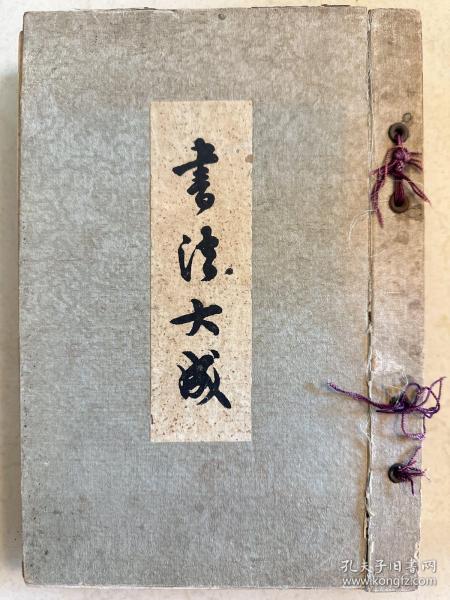 書法大成
孔夫子旧书网
www.kongfz.com